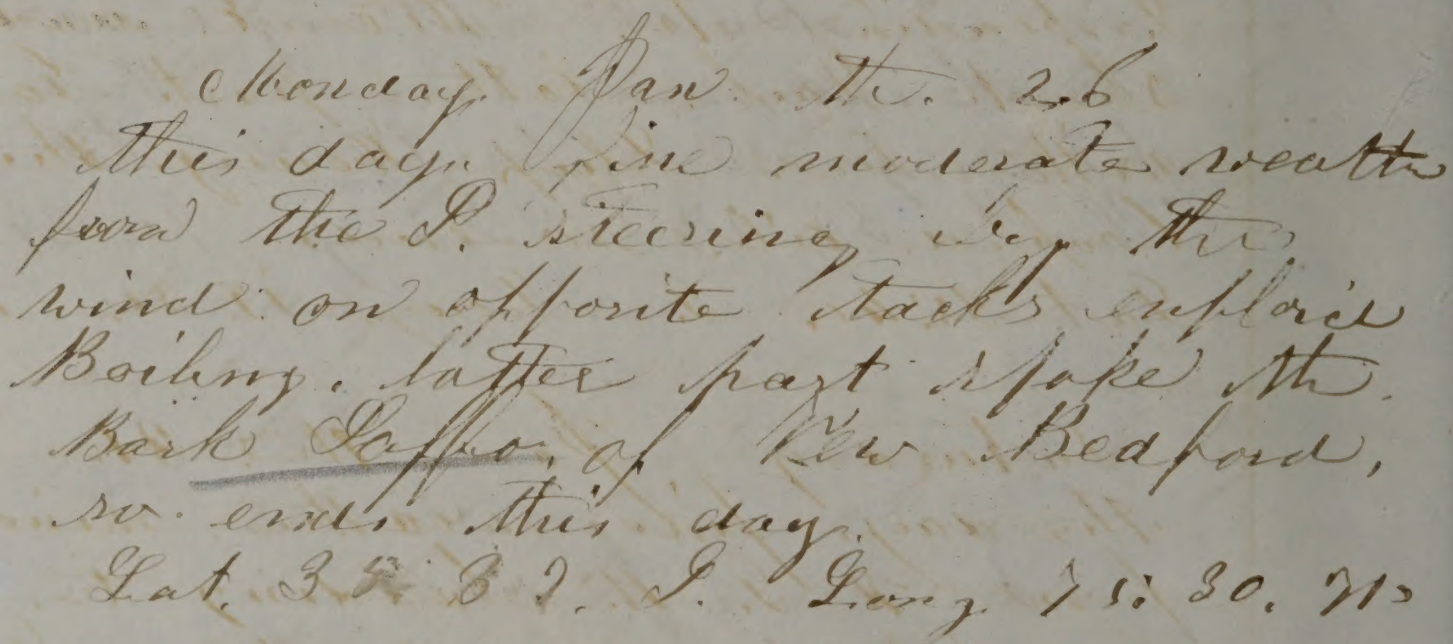 Monday. Jan. th. 26
this day. fine moderate weath
from the S. steering by the
wind on opposite tacks emploid
Boiling. latter part spoke the
Bark Saffo. of New Bedford,
so ends this day.
Lat. 32. S. Long. 75: 30. W